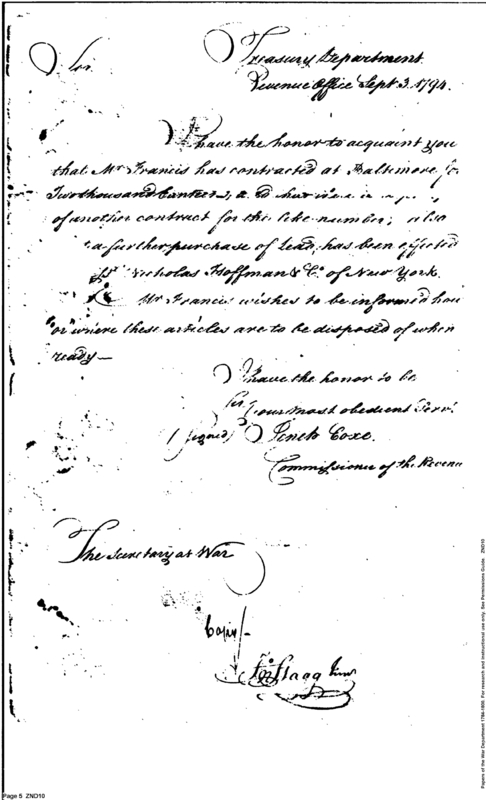 Treasury Department
Revenue Office Sept 3. 1794.
Sir
I have the honor to acquaint you
that Mr Francis has contracted at Baltimore for
Two thousand Canteens,
of another contract for the like number; also
a further purchase of Lead, has been effected
Nicholas Hoffman & Co. of New York.
Mr Francis wishes to be informed how
or where these articles are to be disposed of when
ready—
I have the honor to be
Sir
your most obedient Serv.
(signed) Tench Coxe.
Commissioner of the Revenue
The Secretary at War
Copy/-
Flagg Junr
Page 5 ZND10
Papers of the War Department 1784-1800. For research and instructional use only. See Permissions Guide. ZND10